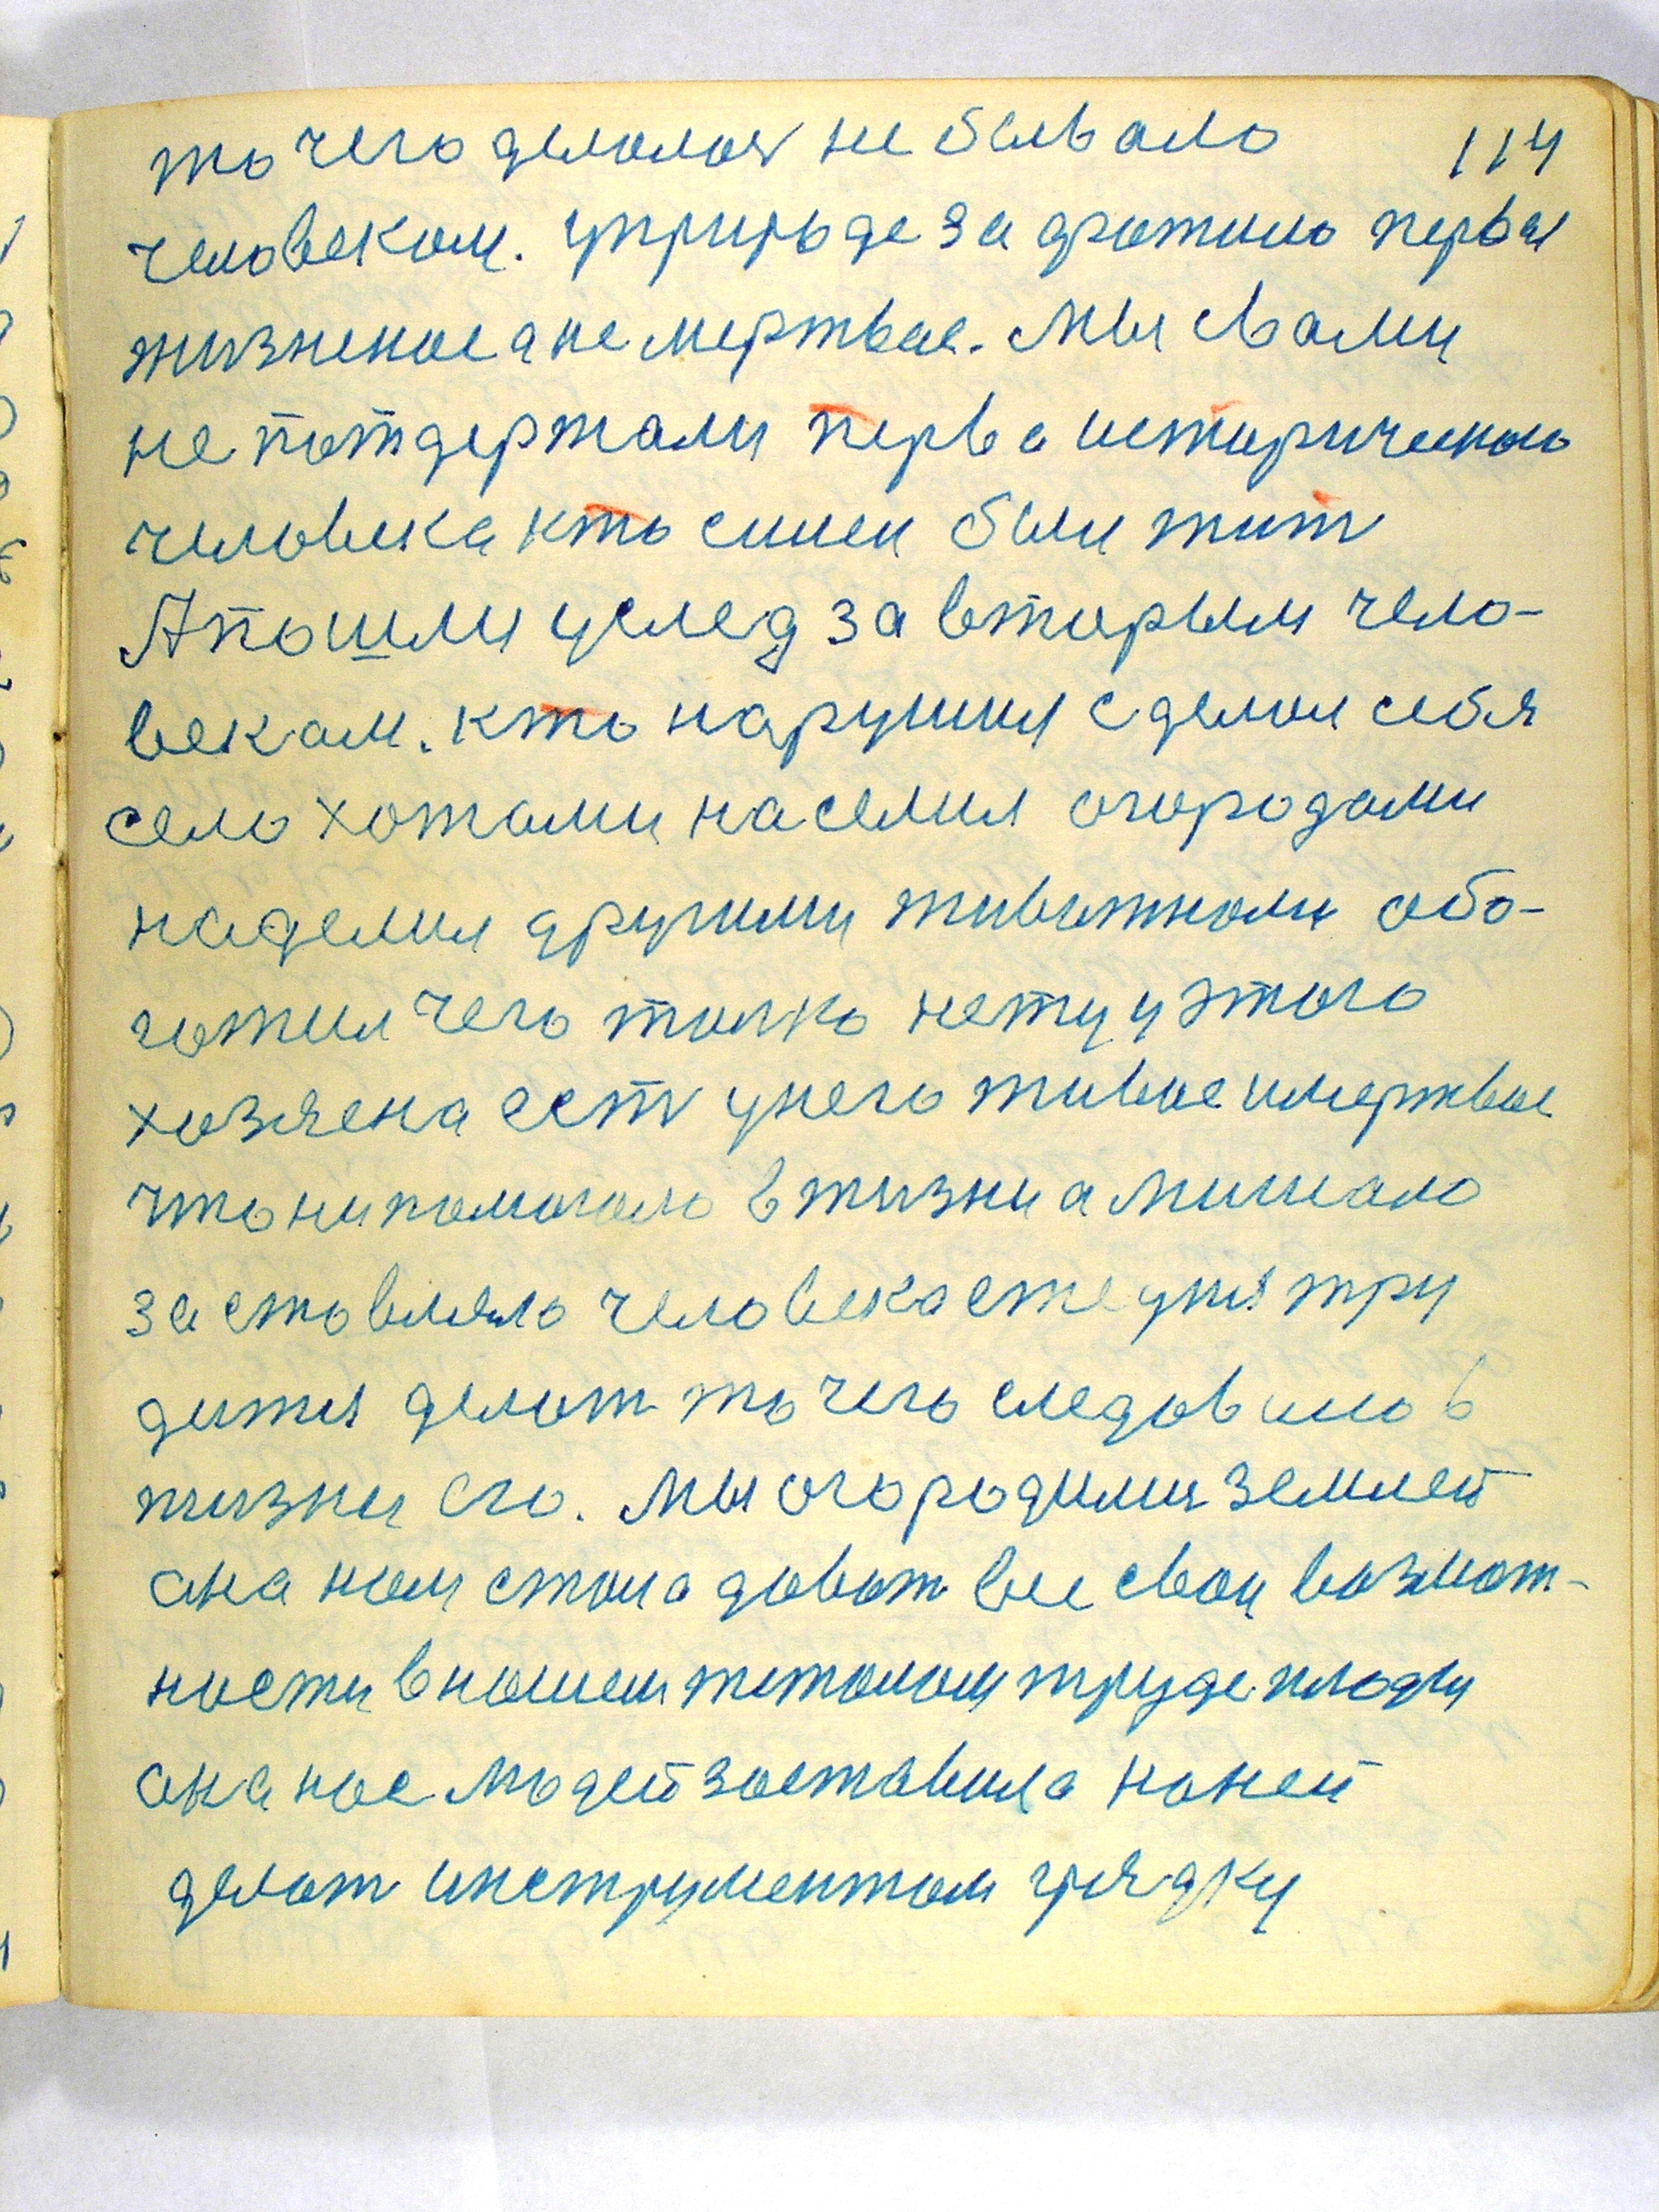 то чего делолос не бывало 114
человеком. уприроде зародило первое
жизненое а не мертвое. Мы свами
не потдержали перво историческаго
человека кто силен были жит
А пошли услед за вторым чело-
веком. кто нарушил сделал себя
село хотами населил огородами
наделил другими животноми обо-
готил чего толко нету у этого
хозяена ест унего живое имертвое
что нипомогало в жизни а мишало
заставляло человека ежедня тру
дится делат то чего следовало в
жизни его. Мы огородилис землей
она нам стала доват все свои возмож-
ности в нашем тяжолом труде плоды
она нас людей заставила наней
делат инструментом грядку